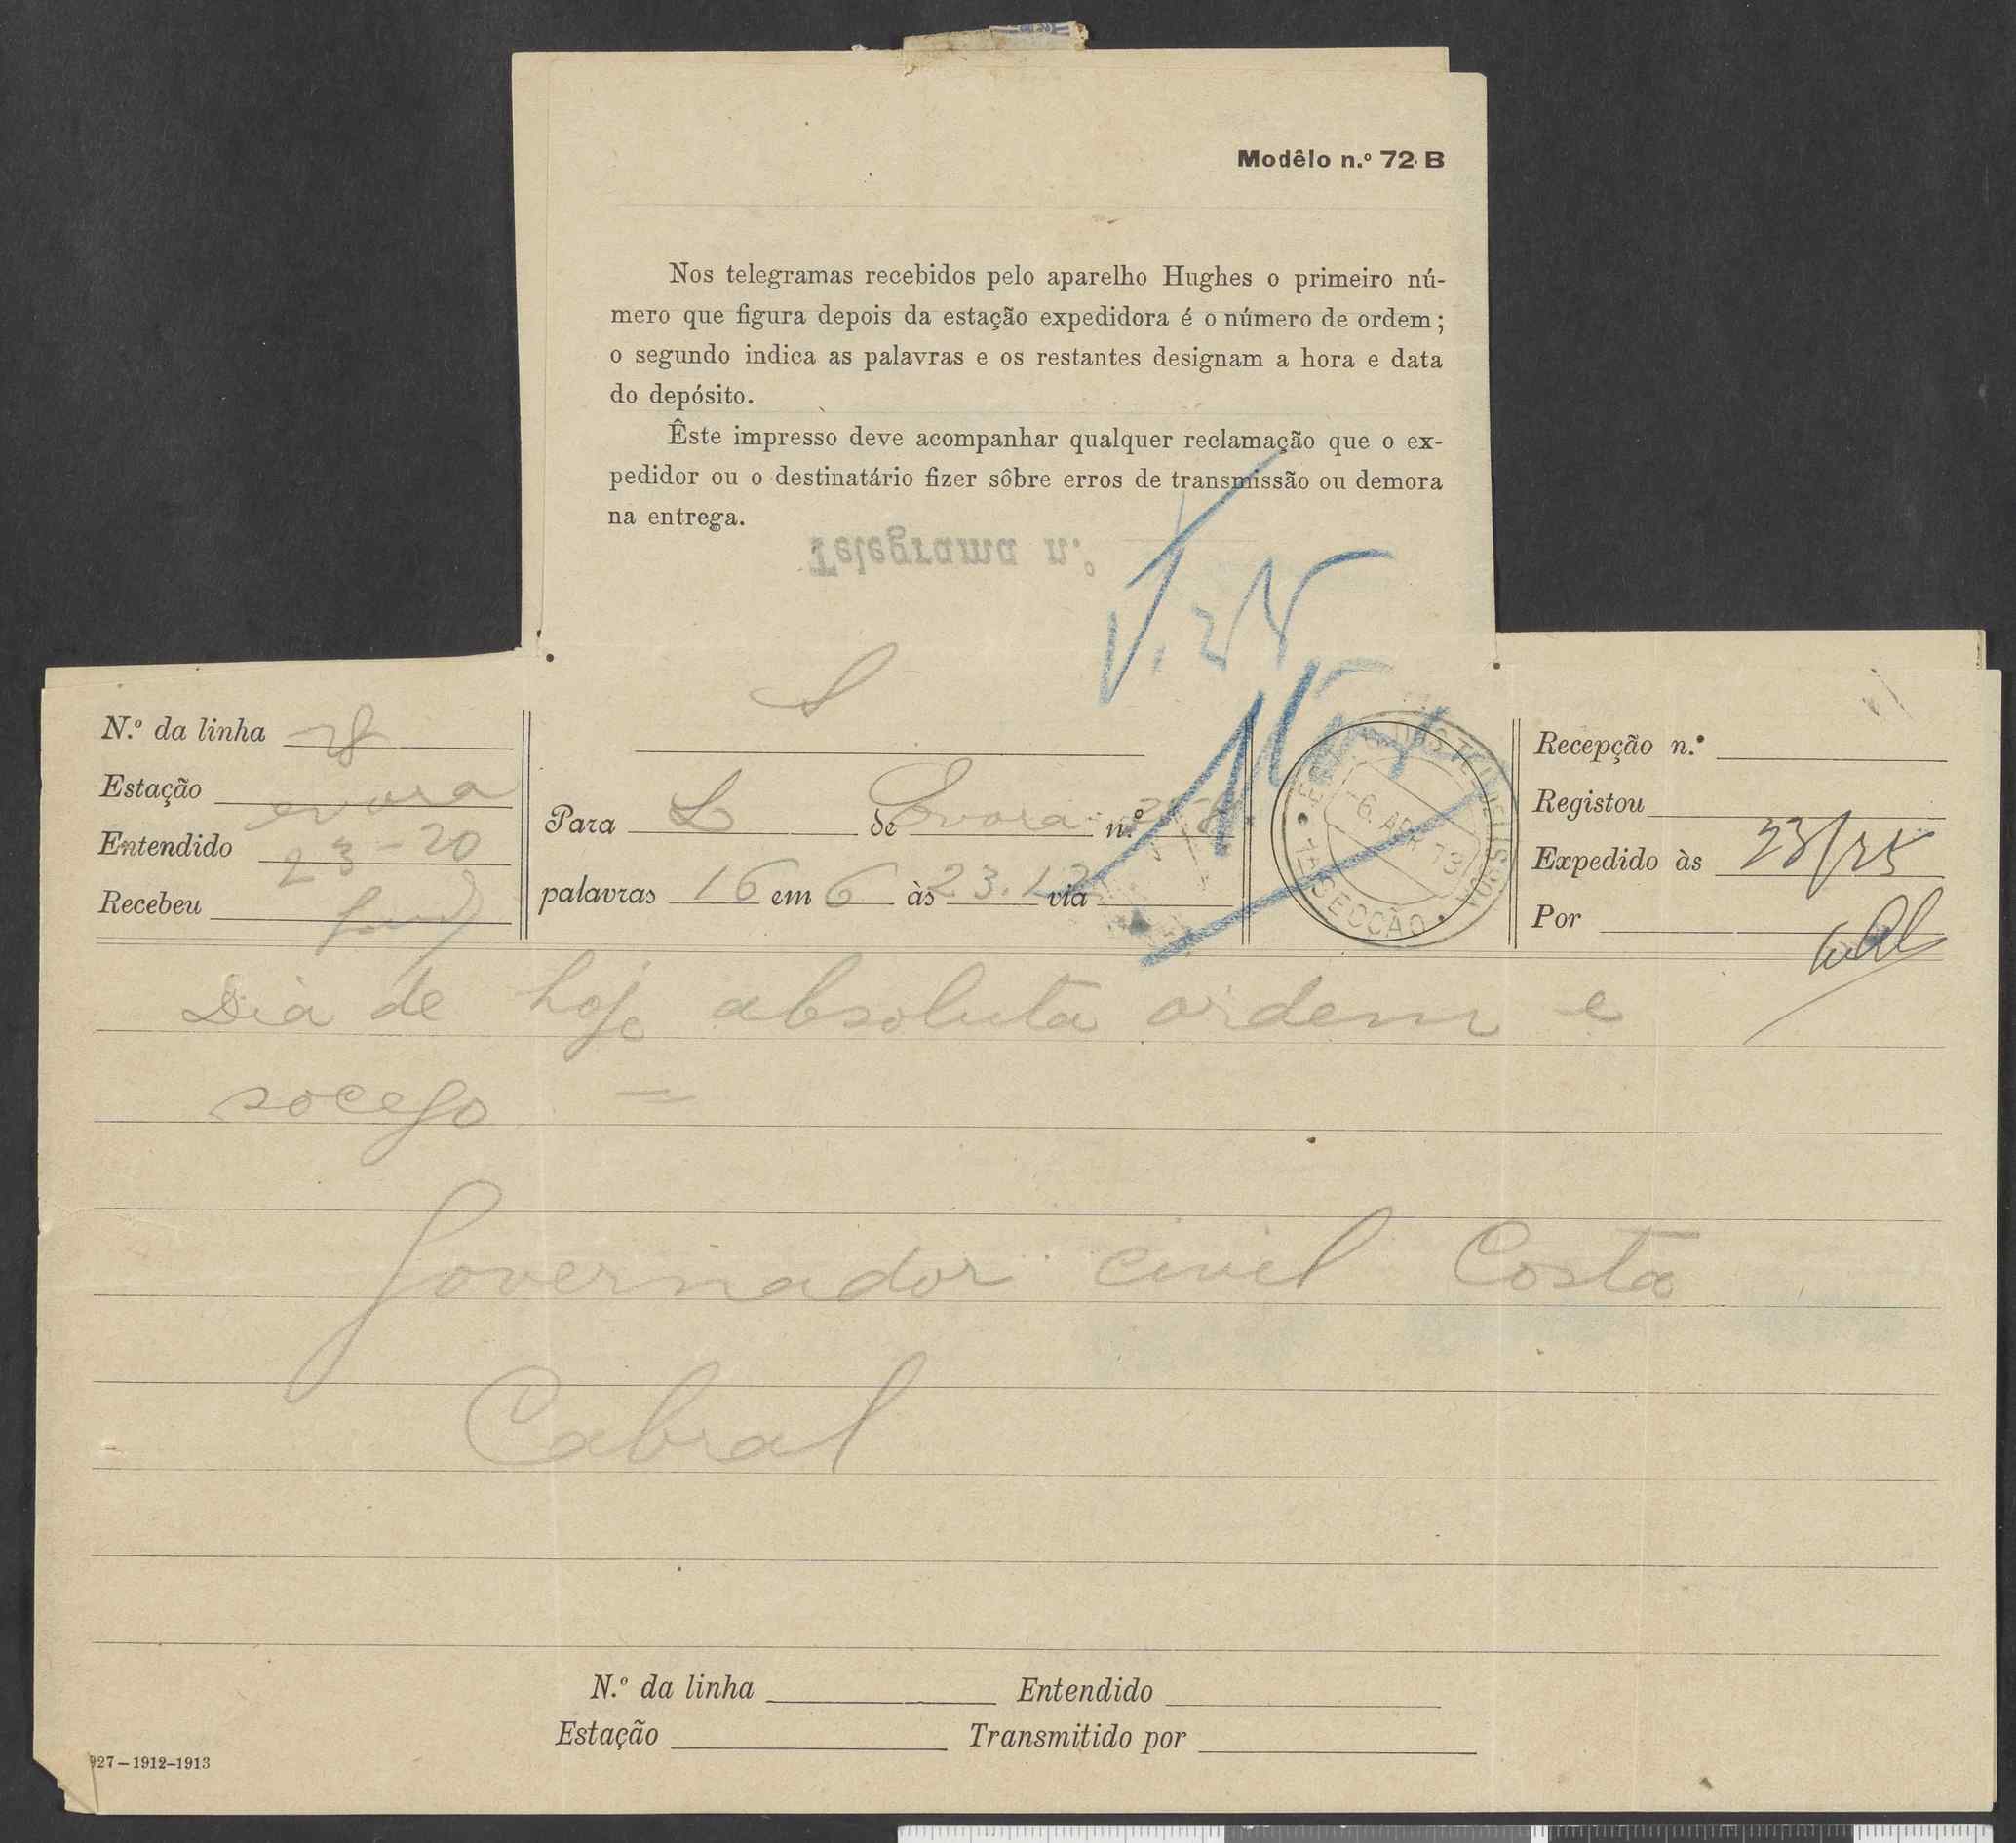 Modêlo n.º 72 B
Nos telegramas recebidos pelo aparelho Hughes o primeiro nú-
mero que figura depois da estação expedidora é o número de ordem;
o segundo indica as palavras e os restantes designam a hora e data
do depósito.
Êste impresso deve acompanhar qualquer reclamação que o ex-
pedidor ou o destinatário fizer sôbre erros de transmissão ou demora
na entrega.
Telegrama n.º
S
N.º da linha 28
Estação evora
Entendido 23-20
Recebeu
Para L de Evora n.º
palavras 16 em 6 às 23.12 via
6. ABR 13
1ª SECÇÃO
Recepção n.º
Registou
Expedido às 23/25
Por
Dia de hoje absoluta ordem e
socego =
Governador civil Costa
Cabral
N.º da linha Entendido
Estação Transmitido por
927-1912-1913